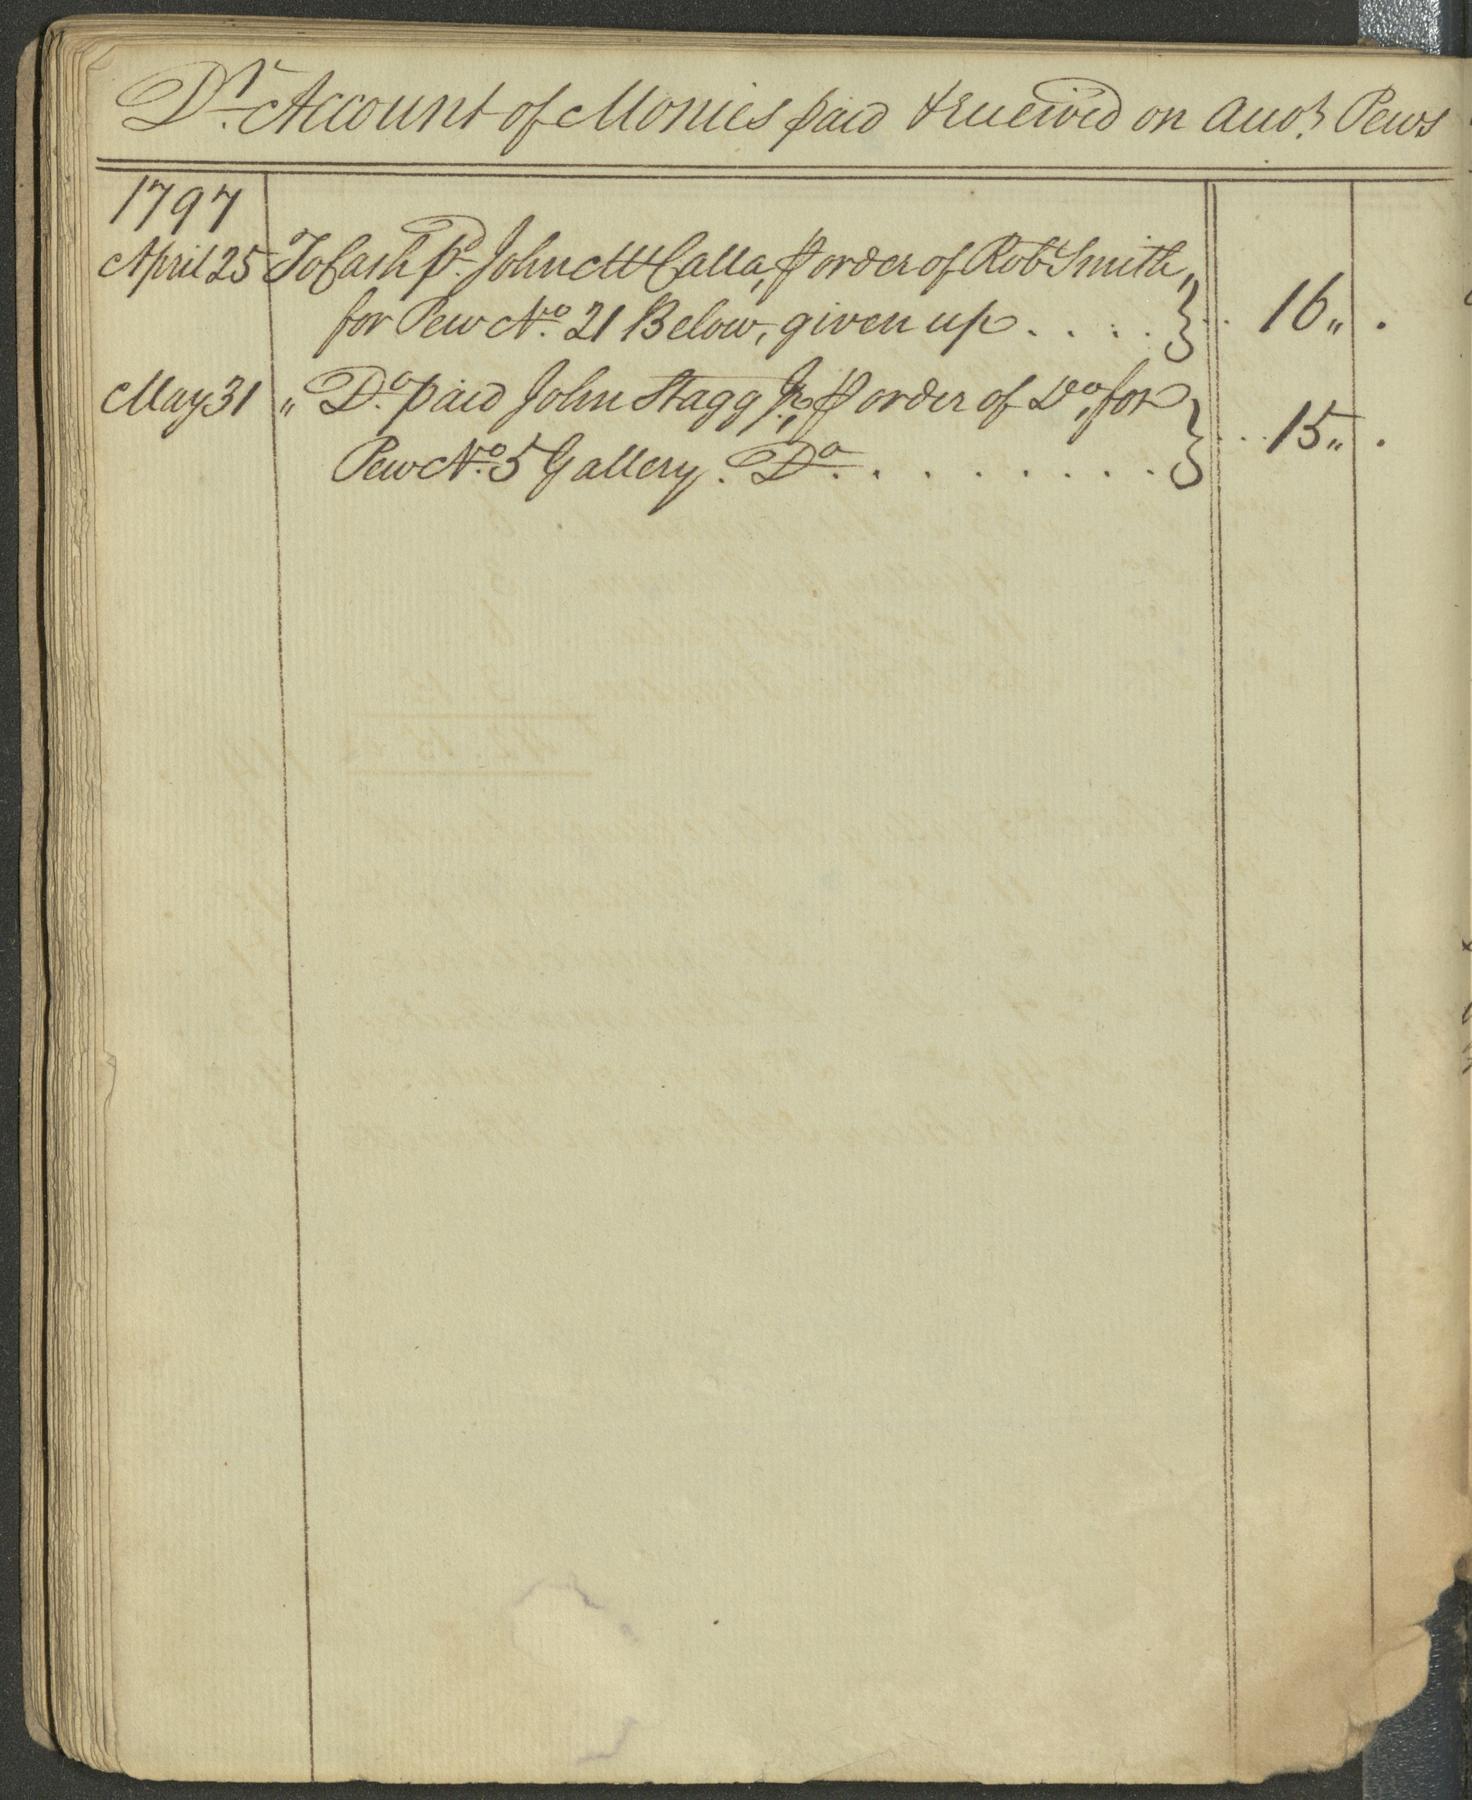 Dr. Account of Monies paid & received on Acco.t Pews
1797
April 25 To Cash p.d John McCalla, ⅌ order of Rob.t Smith,
for Pew No. 21 Below, given up . . . . } . . 16 „ .
May 31 „ Do. paid John Stagg Jr., ⅌ order of Do, for
Pew No. 5 Gallery. Do. . . . . . . . . } . . . 15 „ .